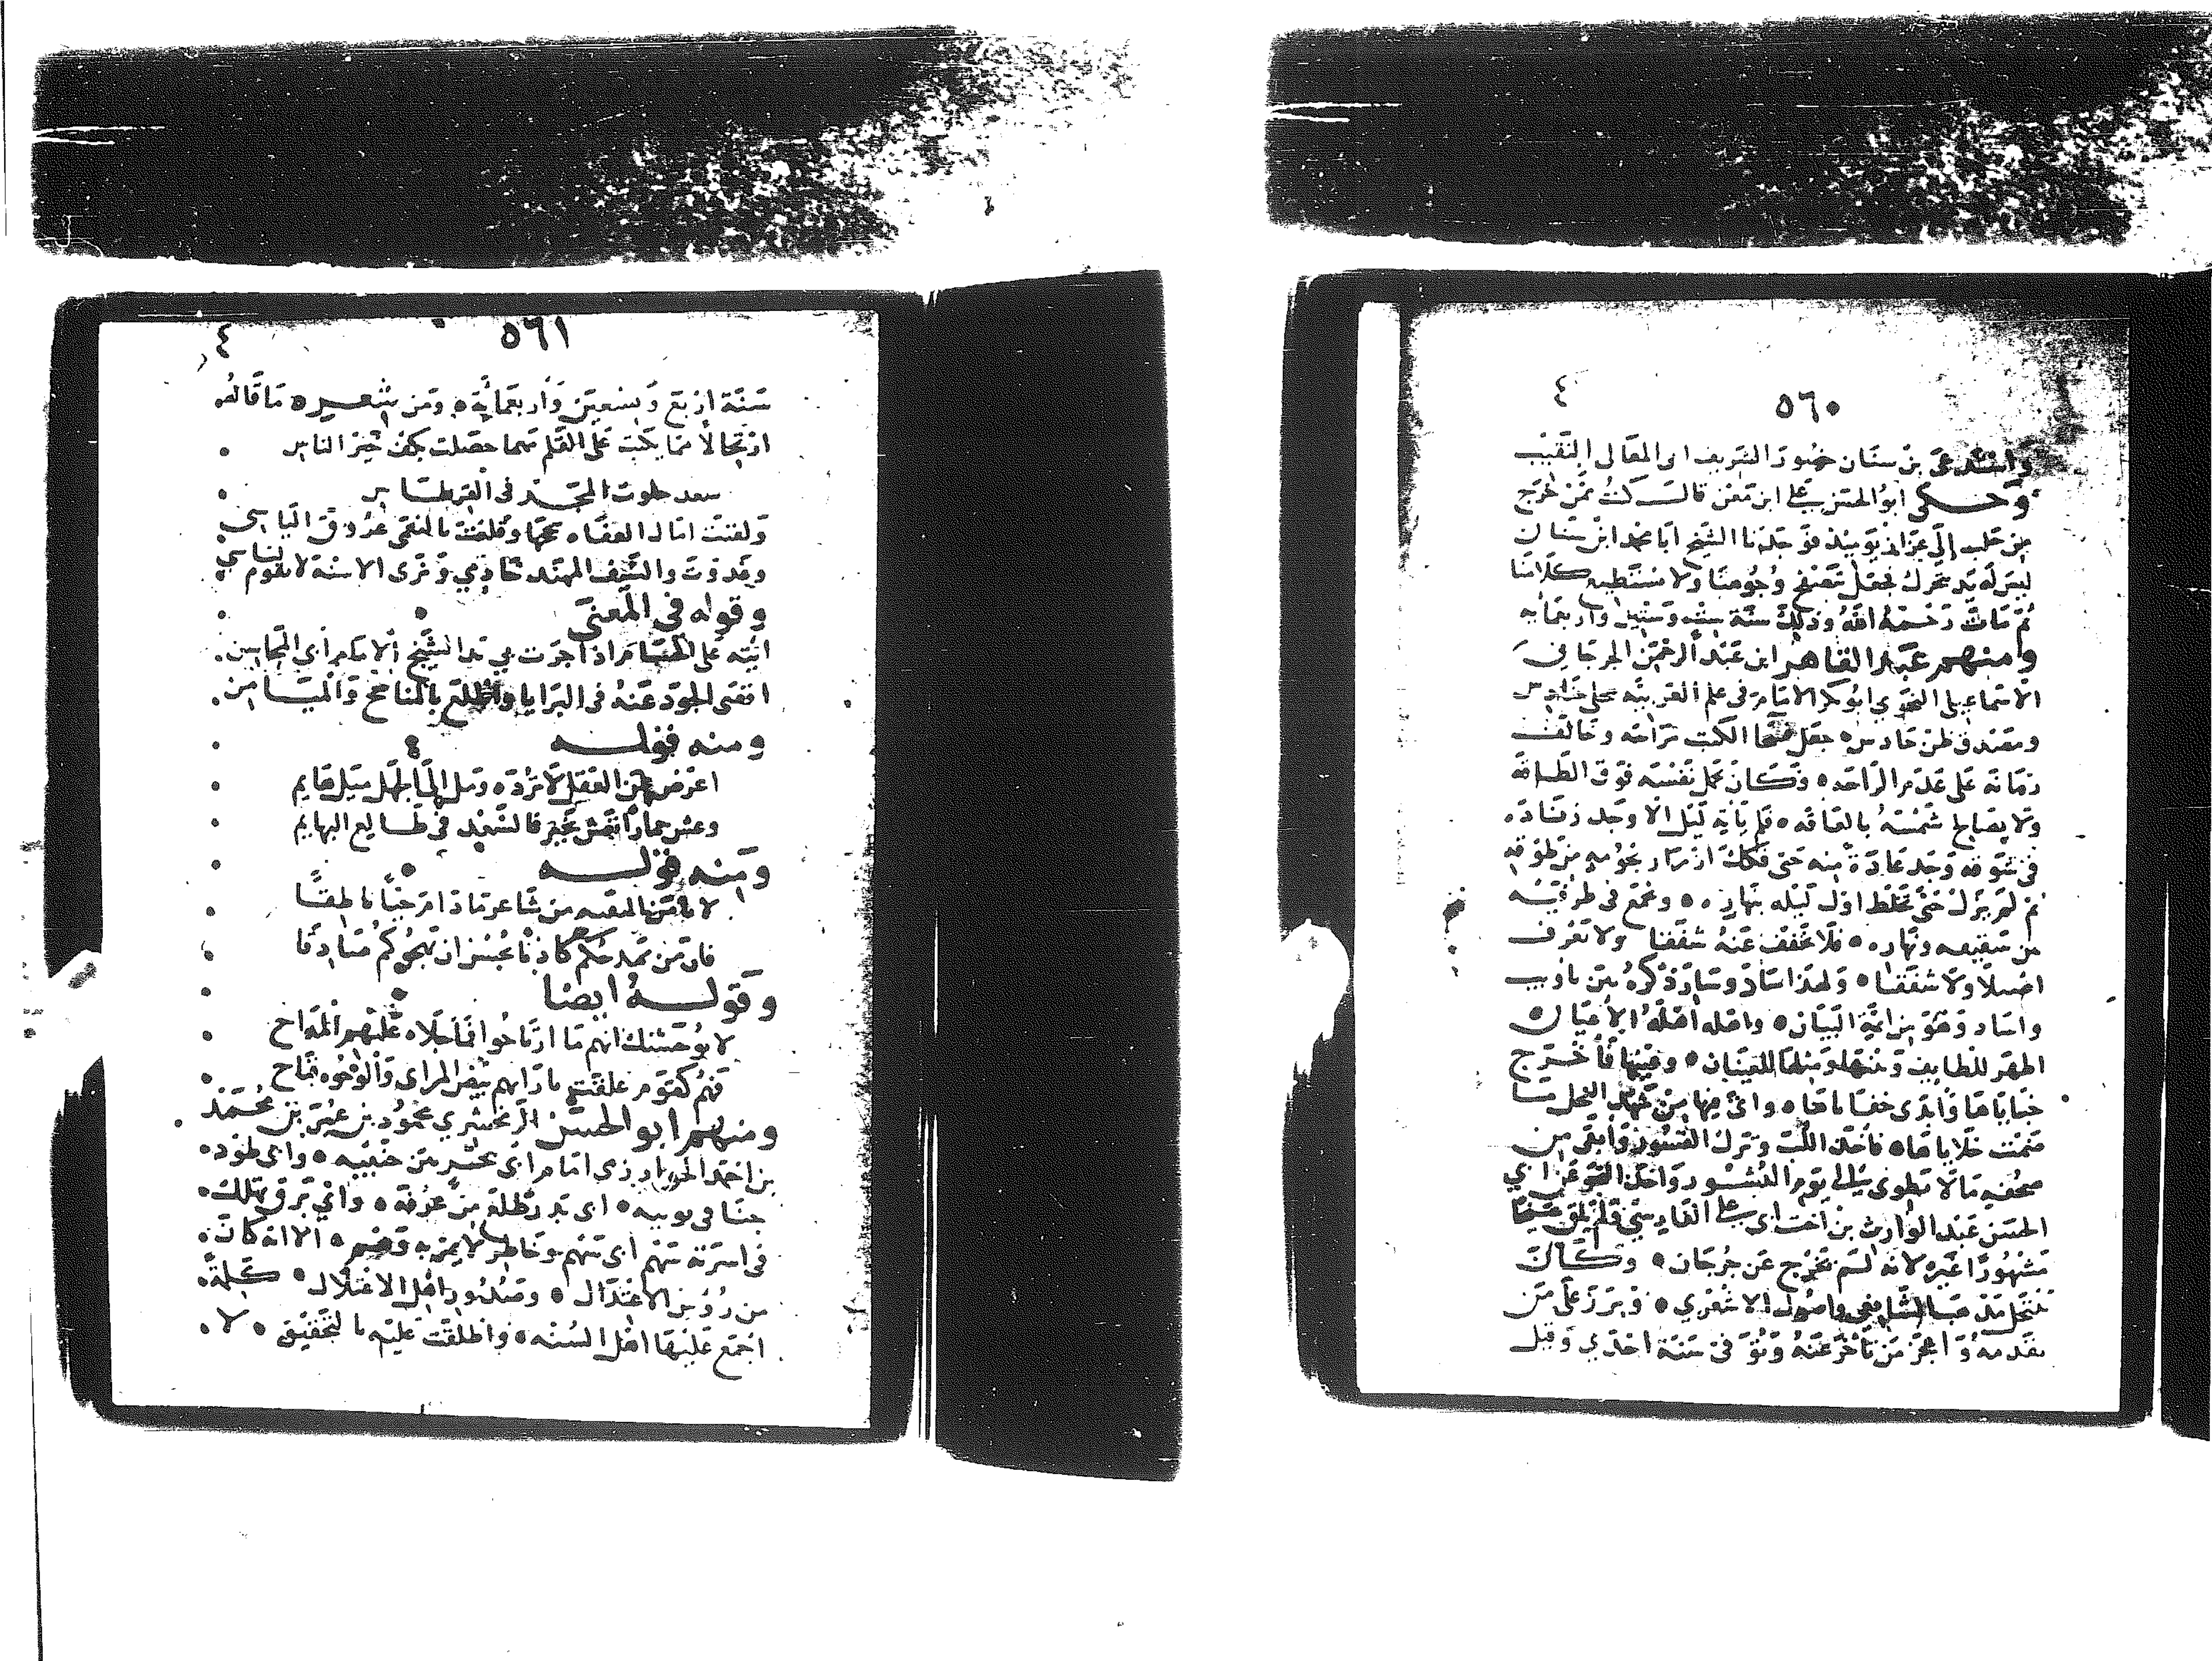 ٤
٥٦٠
واستدعى بن سنان حضور الشريف ابى المعالى النقيب
وحكى ابو الحسن على ابن معن قال كنت ممن خرج
من حلب إلى عزاز يوميذ فوجدنا الشيخ أبا محمد ابن سنان
ليس له يد تتحرك فجعل يتصفح وجوهنا ولا يستطيع كلامنا
ثم مات رحمه الله وذلك سنة ست وستين واربعمايه
ومنهم عبد القاهر ابن عبد الرحمن الجرجاني
الاسماعيلى النحوي ابو بكر الامام فى علم العربيه
ومصدق ظن حادس جعل الكتب مراحه وخالف
زمانه على عدم الراحه وكان يحمل نفسه فوق الطاقه
ولا يصابح شمسه بالفاقه فلم يأته ليل الا وجد زياده
فى شوقه وجد عادة منه حتى فكك ازرار نجومه من طوقه
ثم لم يزل حتى تخلط اول ليله بنهاره ويجمع فى طرفيه
من شفيعه ونهاره فلا يخفف عنه شفقا ولا تعرف
اصيلا ولا شفقا ولهذا ساد وسار ذكره بين تاويب
واساد وهو من ايمة البيان وامله اهله الأعيان
اظهر اللطايف ومثلها للعيان وعينها فأخرج
خباياها وابدى خفاياها واتى فيها من شهد النحل بما
ضمنت خلاياها فاخذ اللب وترك القشور وابقى من
صحفه مالا يطوى الى يوم النشور واخذ النحو عن ابي
الحسن عبد الوارث بن اخت ابى على الفارسي فلم يلق شيخا
مشهورا غيره لانه لم يخرج عن جرجان وكان
ينتحل مذهب الشافعي واصول الاشعري وبرز على من
تقدمه واعجز من تأخر عنه وتوفى فى سنة احدي وقيل
٤
٥٦١
سنة اربع وسبعين وأربعمائة ومن شعره ما قاله
ارتجالا مما يكتب على القلم مهما حصلت بكف خير الناس
سعد جلوت المجد فى القرطاس
ولقيت امال العفاه بنجحها وقلقت بالنعمى عروق الياس
وغدوت والسيف المهند خادمي وترى الاسنة لا تقوم لباسي
وقوله فى المعنى
اتيه على الحسام اذا جرت بي يد الشيخ الامام أبي المحاسن
افضى الجود عنه فى البرايا واطلع بالمناجح والميامن
ومنه قوله
اعرض عن العقل لا ترده ومل الى الجهل ميل هايم
وعش حمارا تعش بخير فالسعد في طالع البهايم
ومنه قوله
لا تامن النفثه من شاعر مادام حيا ناطقا
فان من يمدحكم كاذبا يحسن ان يهجوكم صادقا
وقوله ايضا
لا يوحشنك انهم ما ارتاحوا مما جلاه عليهم المداح
فهم كقوم علقت بازايهم بيض المراى والوجوه قباح
ومنهم ابو الحسن الزمخشري محمود بن عمر بن محمد
بن احمد الخوارزمى امام اى بحر من جنبيه واي طود
جثا فى بوبيه اى بدر طلع من عرفه واي برق تهلل
فى اسرته سهم اى سهم وخاطر لا يمر به وهم الا انه كان
من رؤس الاعتزال وصدور اهل الاعتلال كلمة
اجمع عليها اهل السنه واطلقت عليه بالتحقيق لا